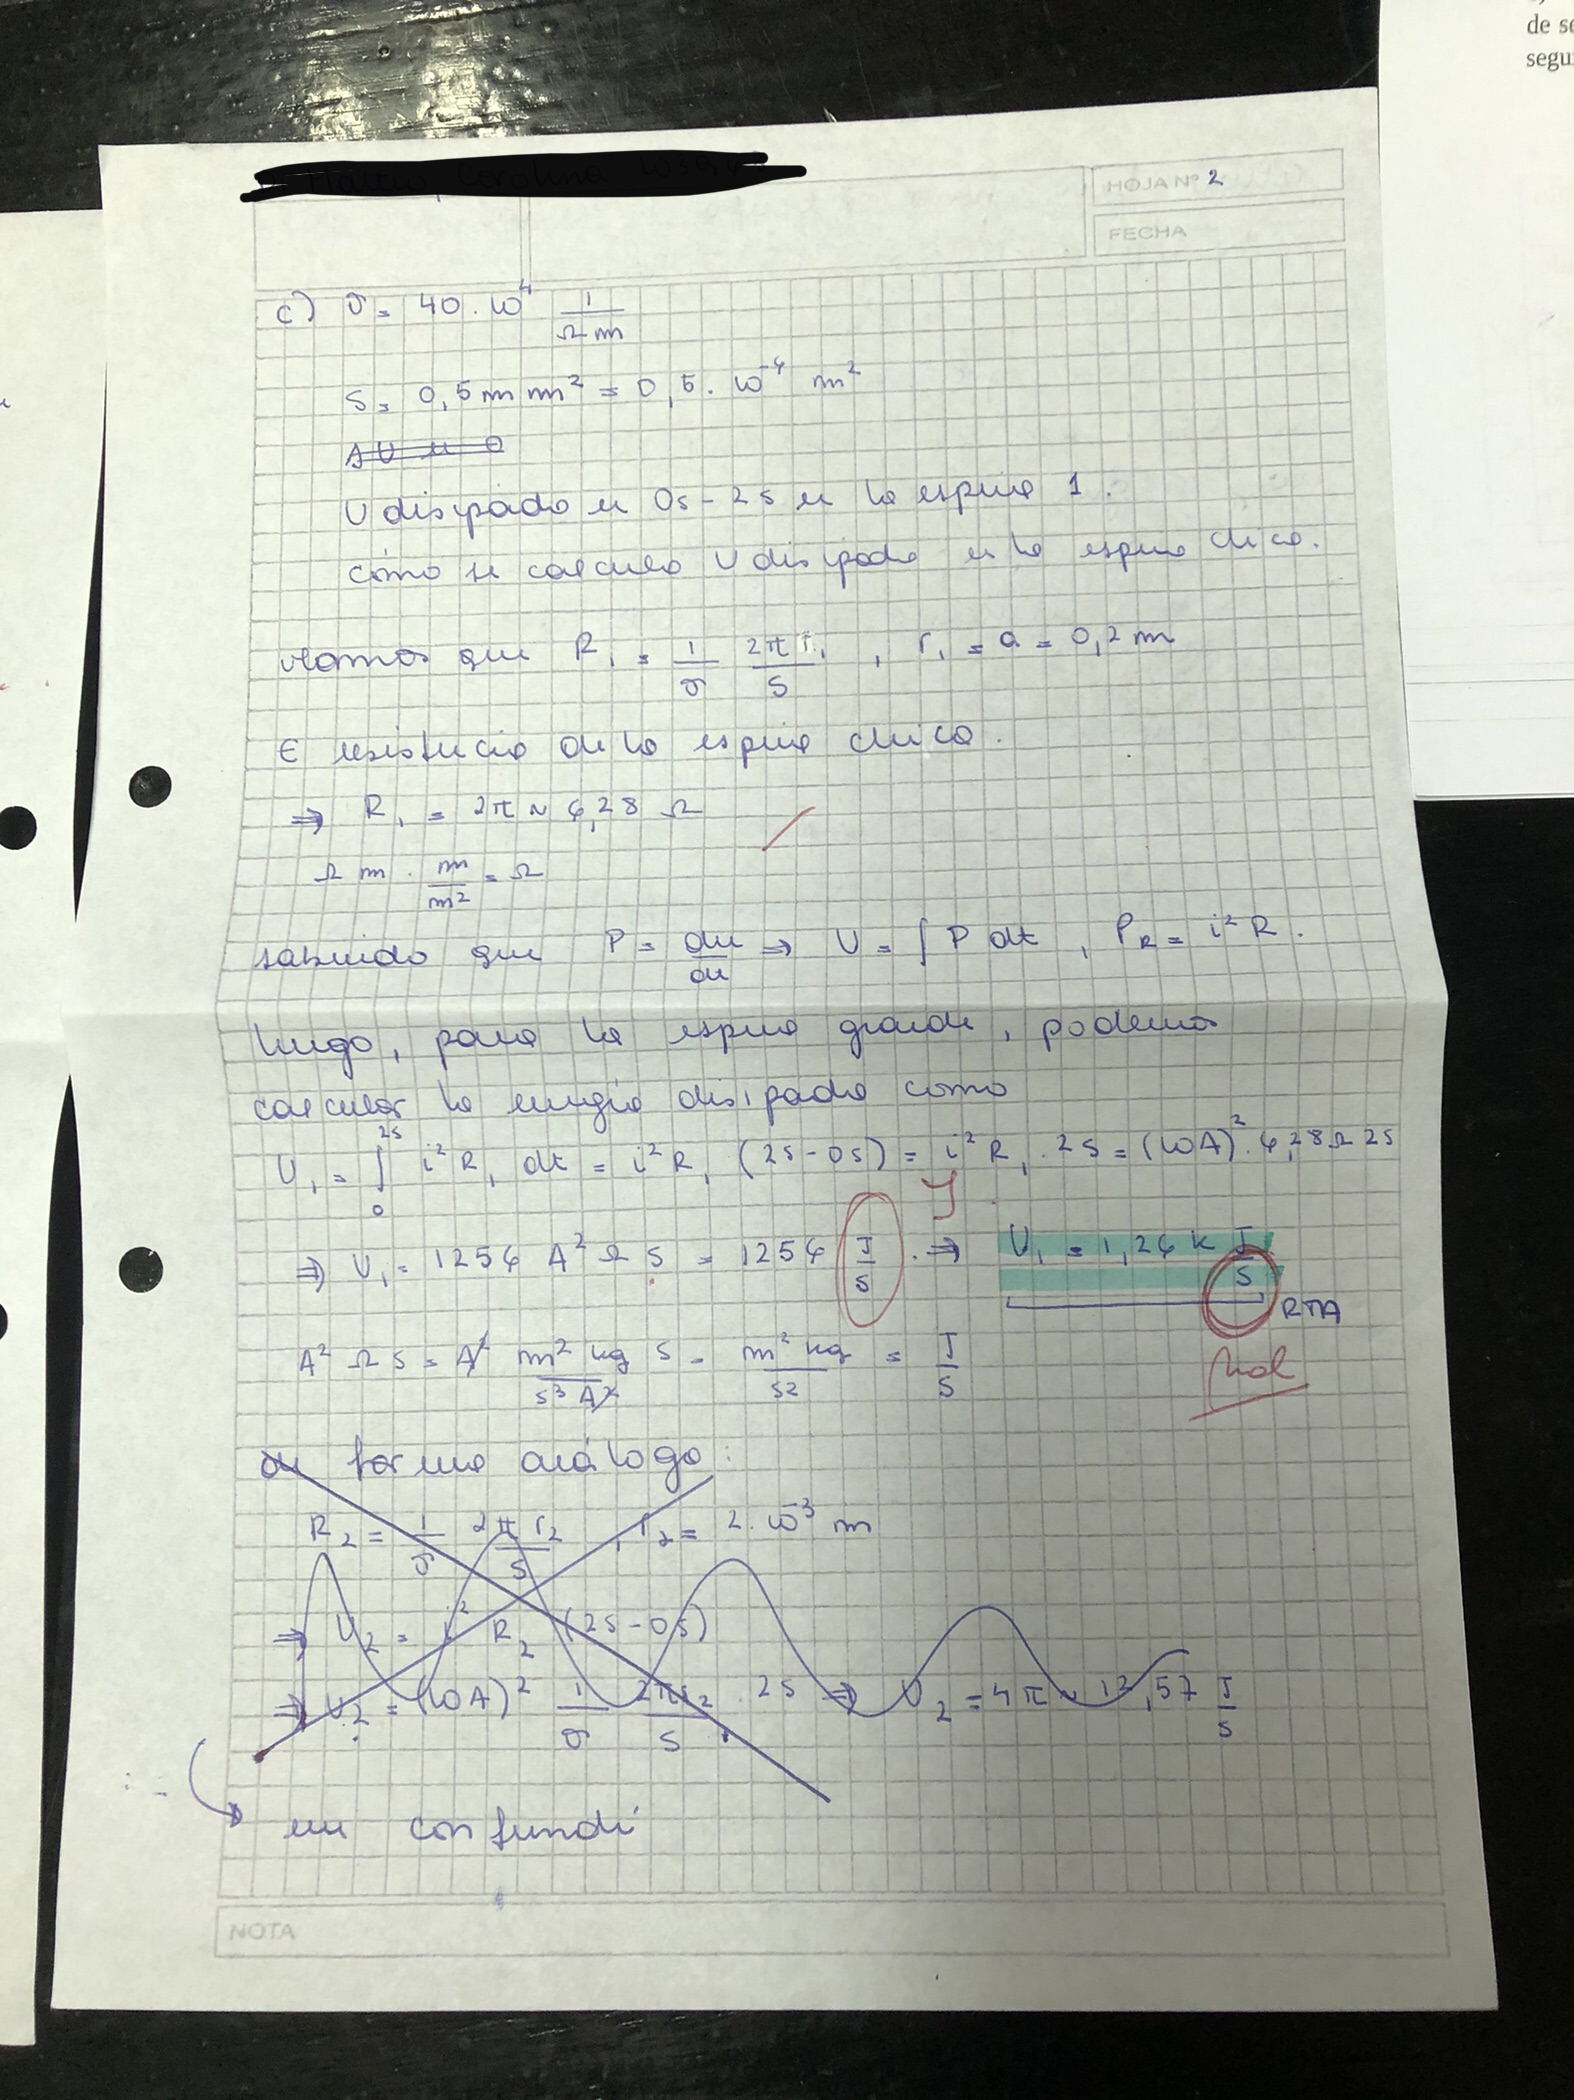 de se
segu
HOJA Nº 2
FECHA
c) σ = 40 . 10⁴ 1/Ωm
S = 0,5 m m² = 0,5 . 10⁻⁴ m²
U disipado en 0s - 2s en la espira 1.
cómo se calcula U disipada en la espira chica.
veamos que R₁ = 1/σ 2πr₁/S , r₁ = a = 0,2 m
∈ resistencia de la espira chica.
⇒ R₁ = 2π ~ 6,28 Ω
Ω m . m/m² = Ω
sabiendo que P = du/du ⇒ U = ∫ P dt , P_R = i² R .
luego, para la espira grande, podemos
calcular la energía disipada como
U₁ = ∫₀²ˢ i² R₁ dt = i² R₁ (2s - 0s) = i² R₁ . 2s = (10A)² . 6,28 Ω 2s
J
⇒ U₁ = 1256 A² Ω s = 1256 J/s . ⇒ U₁ = 1,26 k J/s
RTA
A² Ω s = A² m² kg/s³ A² s = m² kg/s² = J/s
Mal
de forma análoga :
R₂ = 1/σ 2π r₂/S , r₂ = 2 . 10⁻³ m
⇒ U₂ = i² R₂ (2s - 0s)
⇒ U₂ = (10A)² 1/σ 2πr₂/S . 2s ⇒ U₂ = 4π ~ 12,57 J/s
me confundí
NOTA